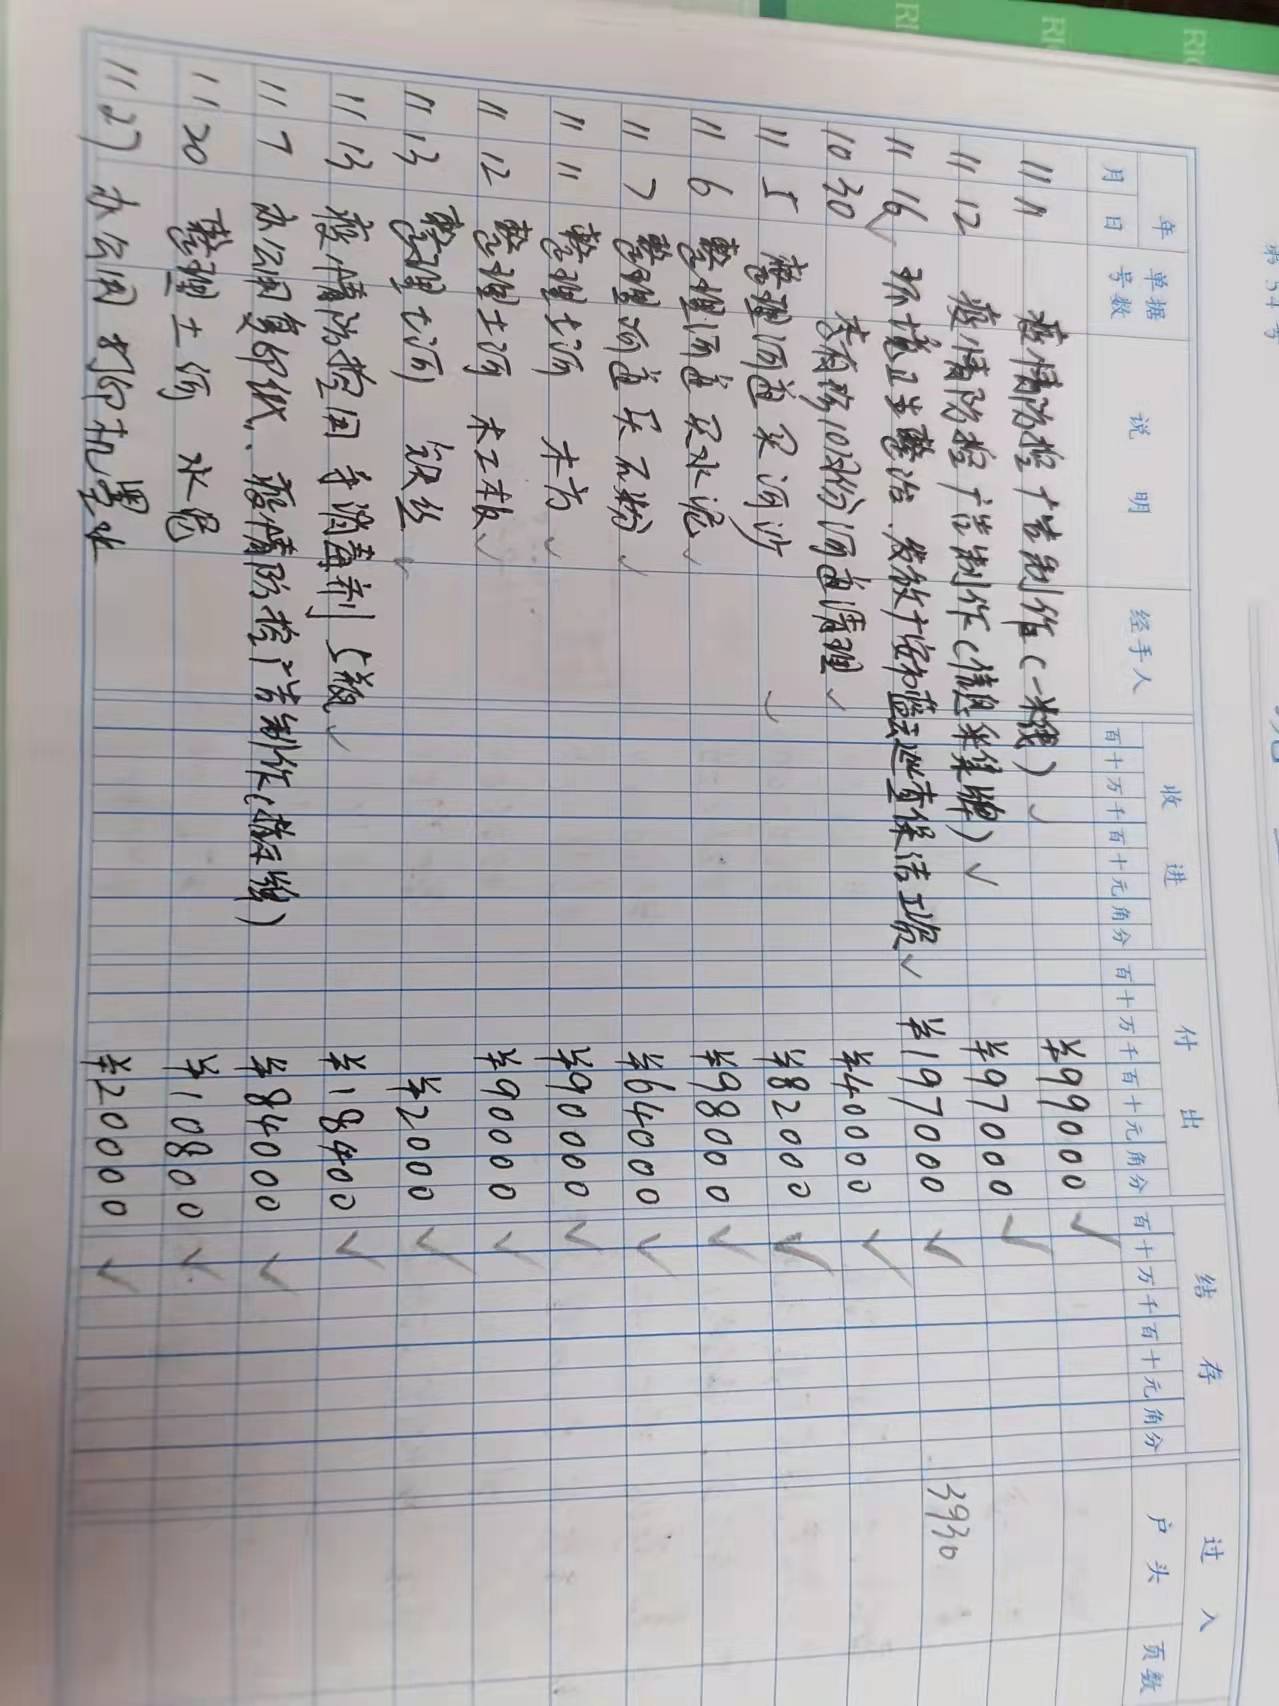 第34号
年 单据号数 说明 经手人 收进 付出 结存 过入
月 日 百十万千百十元角分 百十万千百十元角分 百十万千百十元角分 户头 页数
11 11 疫情防控广告制作(一米线)✓ ¥99000 ✓
11 12 疫情防控广告制作(信息采集牌)✓ ¥97000 ✓
11 16 环境卫生整治、发放十字加蓝天巡查保洁工资✓ ¥197000 ✓ 3930
10 30 10月份河道清理✓ ¥40000 ✓
11 5 整理河道买河沙✓ ¥82000 ✓
11 6 整理河道买水泥✓ ¥98000 ✓
11 7 整理河道买石粉✓ ¥64000 ✓
11 11 整理土河 木方✓ ¥90000 ✓
11 12 整理土河 木工板✓ ¥90000 ✓
11 13 整理土河 铁丝✓ ¥2000 ✓
11 13 疫情防控用手消毒剂5瓶✓ ¥18400 ✓
11 7 办公用复印纸、疫情防控广告制作(横幅) ¥84000 ✓
11 20 整理土河 水泥 ¥10800 ✓
11 27 办公用打印机墨水 ¥20000 ✓